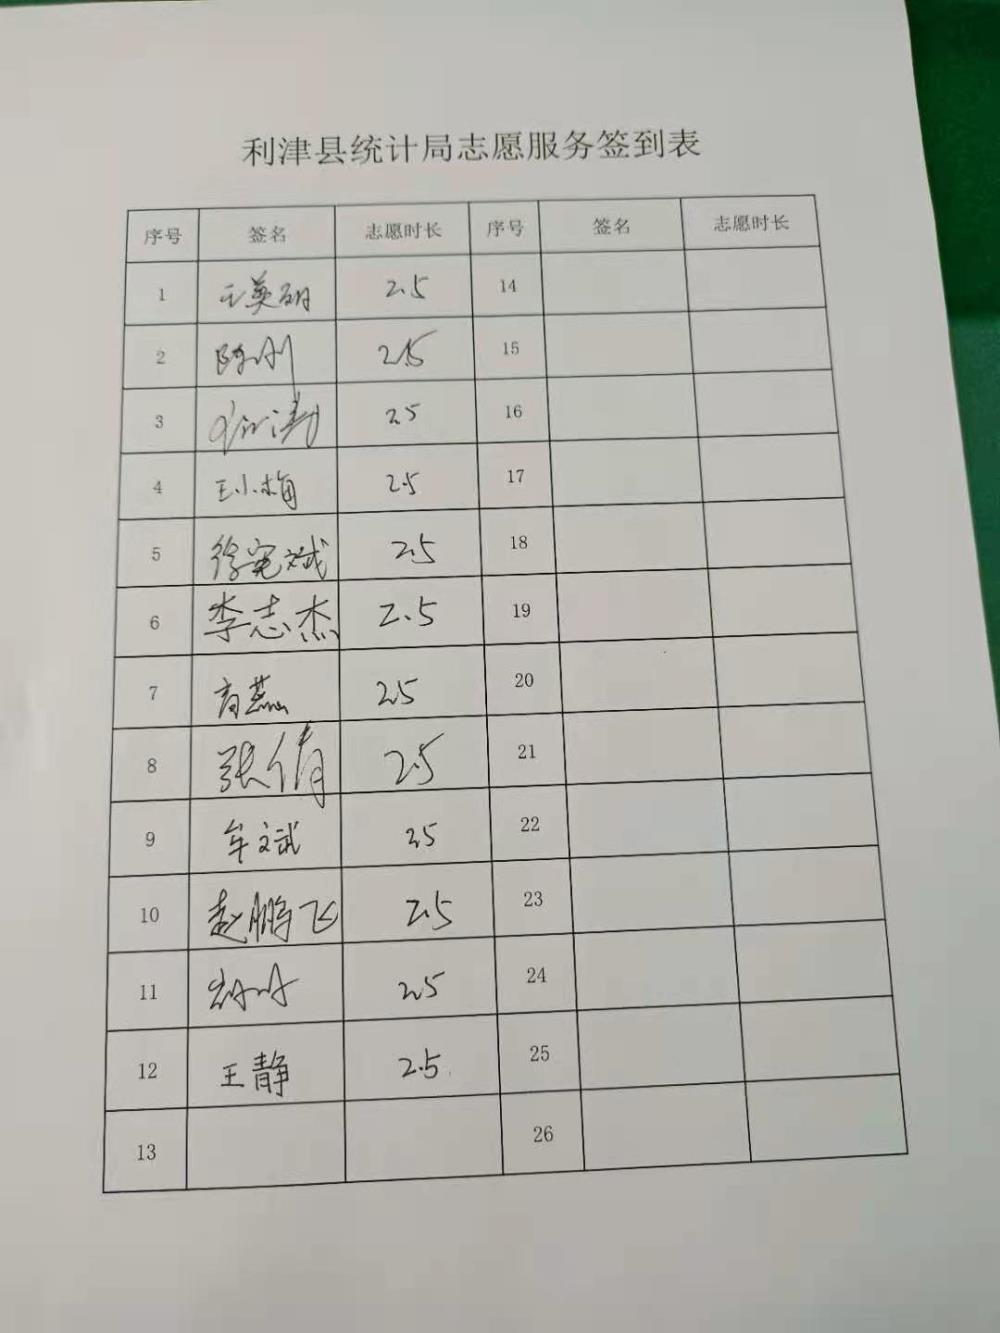 利津县统计局志愿服务签到表
序号 签名 志愿时长 序号 签名 志愿时长
1 王英 2.5 14
2 陈刚 2.5 15
3 涛 2.5 16
4 王小梅 2.5 17
5 徐宪斌 2.5 18
6 李志杰 2.5 19
7 燕 2.5 20
8 张倩 2.5 21
9 牟文斌 2.5 22
10 赵鹏飞 2.5 23
11 2.5 24
12 王静 2.5 25
13 26